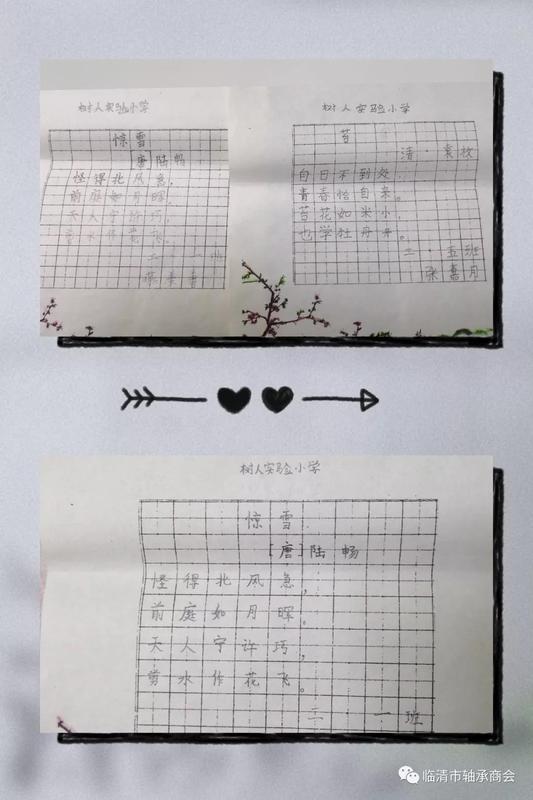 树人实验小学
惊雪
唐陆畅
怪得北风急,
前庭如月晖。
天人宁许巧,
剪水作花飞。
二 一班
树人实验小学
苔
清·袁枚
白日不到处,
青春恰自来。
苔花如米小,
也学牡丹开。
二·五班
张嘉月
树人实验小学
惊雪
[唐]陆畅
怪得北风急,
前庭如月晖。
天人宁许巧,
剪水作花飞。
二 一班
临清市轴承商会